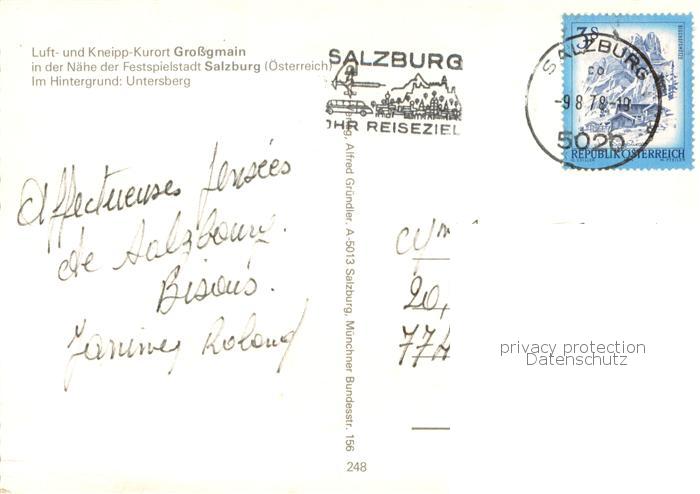 Luft- und Kneipp-Kurort Großgmain
in der Nähe der Festspielstadt Salzburg (Österreich)
Im Hintergrund: Untersberg
SALZBURG
IHR REISEZIEL
3S
SALZBURG
-9.8.78-19
5020
REPUBLIK ÖSTERREICH
Affectueuses pensées
de Salzbourg.
Bisous.
Janine, Roland
Verlag Alfred Gründler, A-5013 Salzburg, Münchner Bundesstr. 156
20,
774
privacy protection
Datenschutz
248